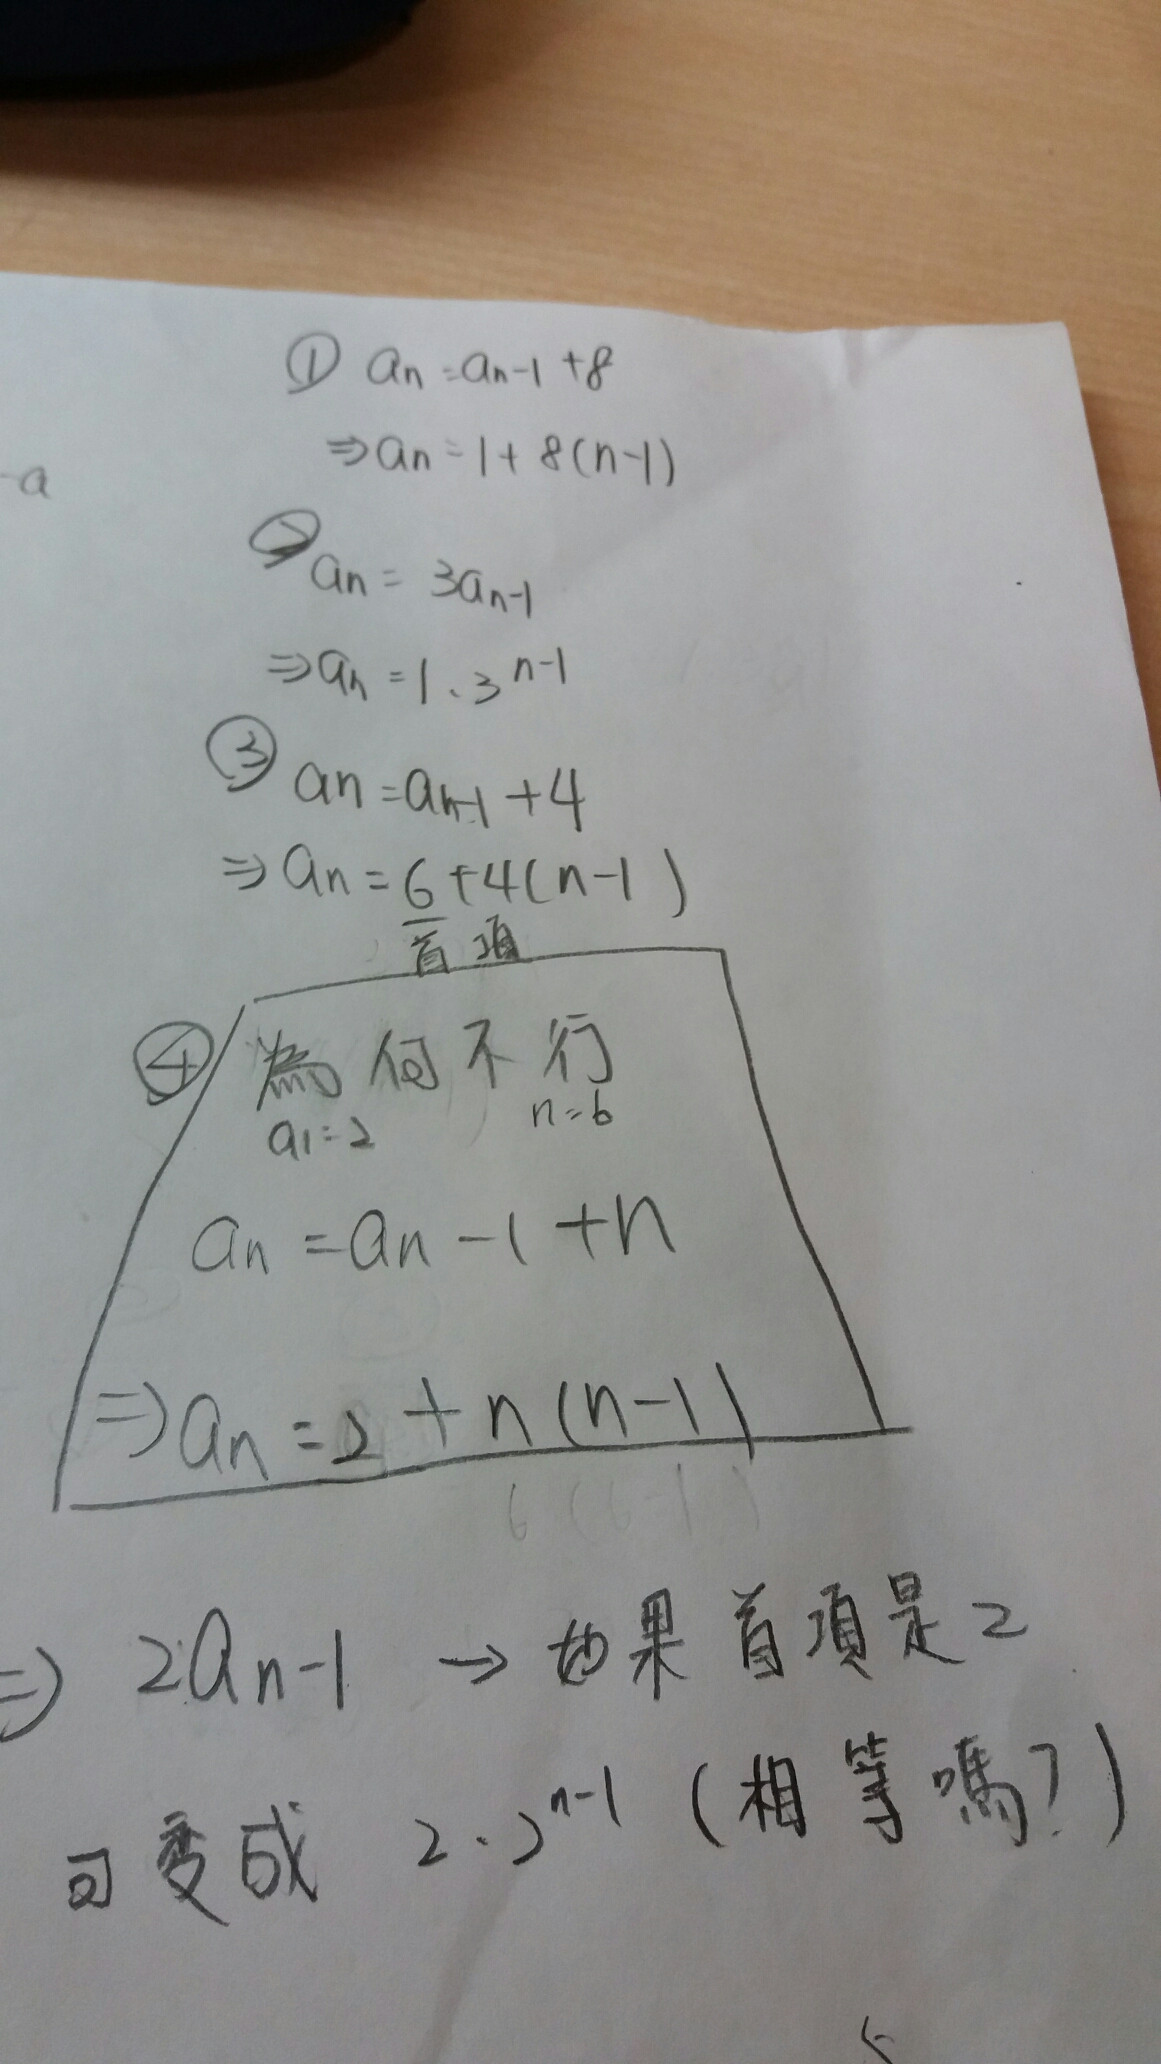 ① an = an-1 +8
⇒ an = 1 + 8(n-1)
-a
② an = 3an-1
⇒ an = 1 . 3^n-1
③ an = an-1 +4
⇒ an = 6 + 4(n-1)
首項
④ 為何不行
a1=2 n=6
an = an-1 +n
⇒ an = 2 + n(n-1)
6(6-1)
⇒ 2an-1 → 如果首項是2
可变成 2.2^n-1 (相等嗎?)